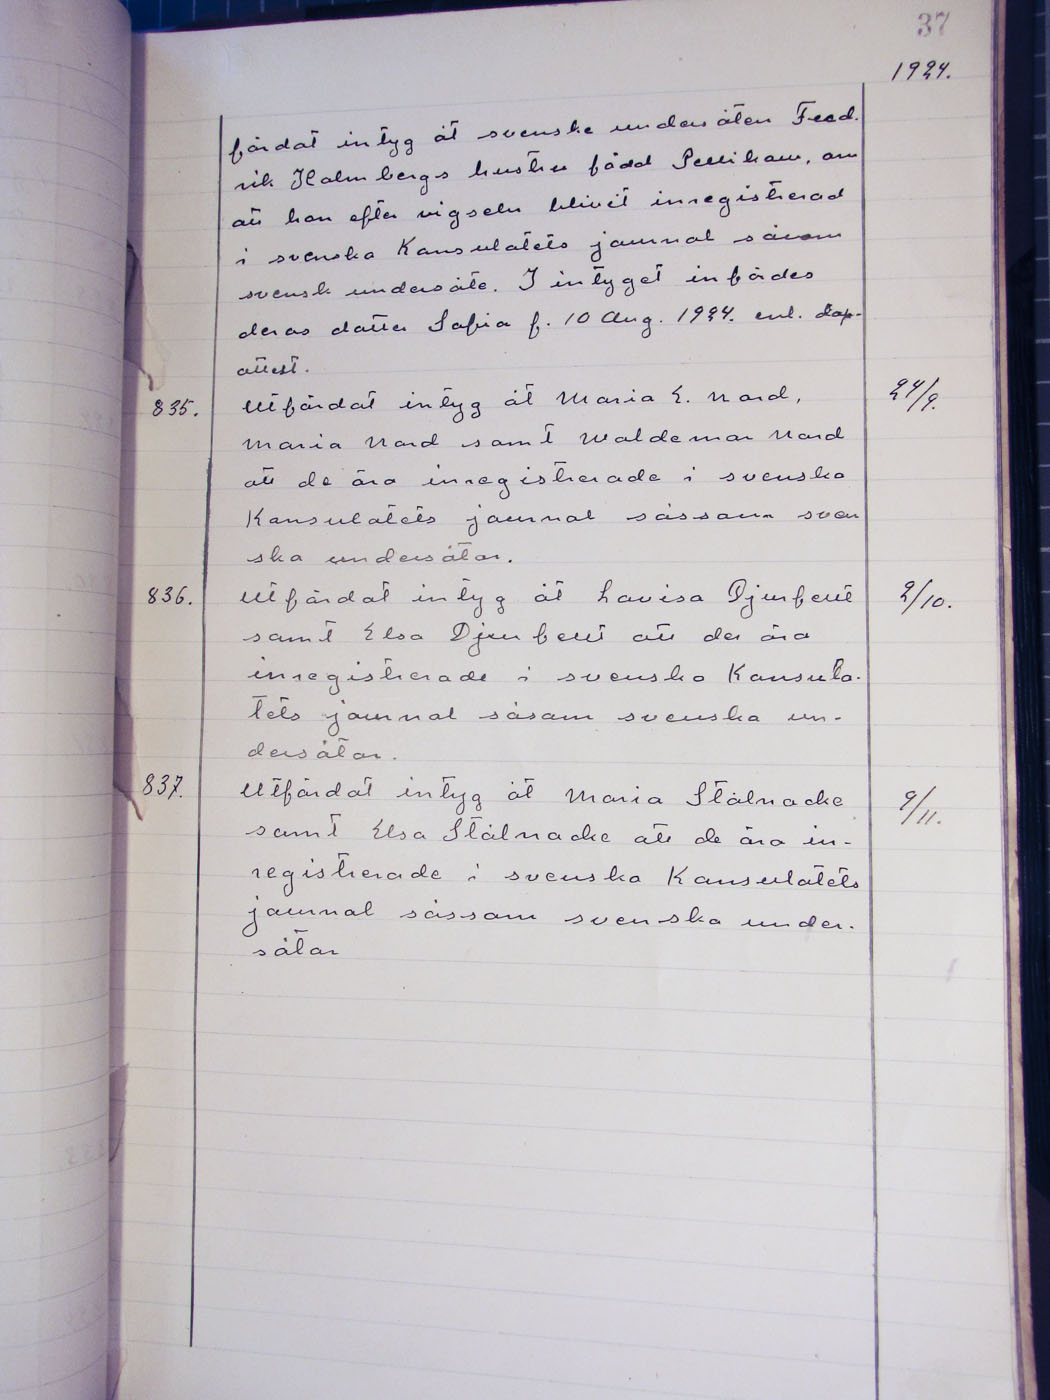 37
1924.
färdat intyg åt svenske undersåten Fred.
rik Holmbergs hustru född Pellikan, om
att hon efter vigseln blivit inregistrerad
i svenska Konsulatets journal såsom
svensk undersåte. I intyget infördes
deras dotter Sofia f. 10 Aug. 1924. enl. dop-
attest.
835. Utfärdat intyg åt Maria E. Nord, 24/9.
Maria Nord samt Waldemar Nord
att de äro inregistrerade i svenska
Konsulatets journal såssom sven
ska undersåtar.
836. Utfärdat intyg åt Lovisa Djurfelt 2/10.
samt Elsa Djurfelt att der äro
inregistrerade i svenska Konsula-
tets journal såsom svenska un-
dersåtar.
837. Utfärdat intyg åt Maria Stålnacke 9/11.
samt Elsa Stålnacke att de äro in-
registrerade i svenska Konsulatets
journal såssom svenska under-
såtar